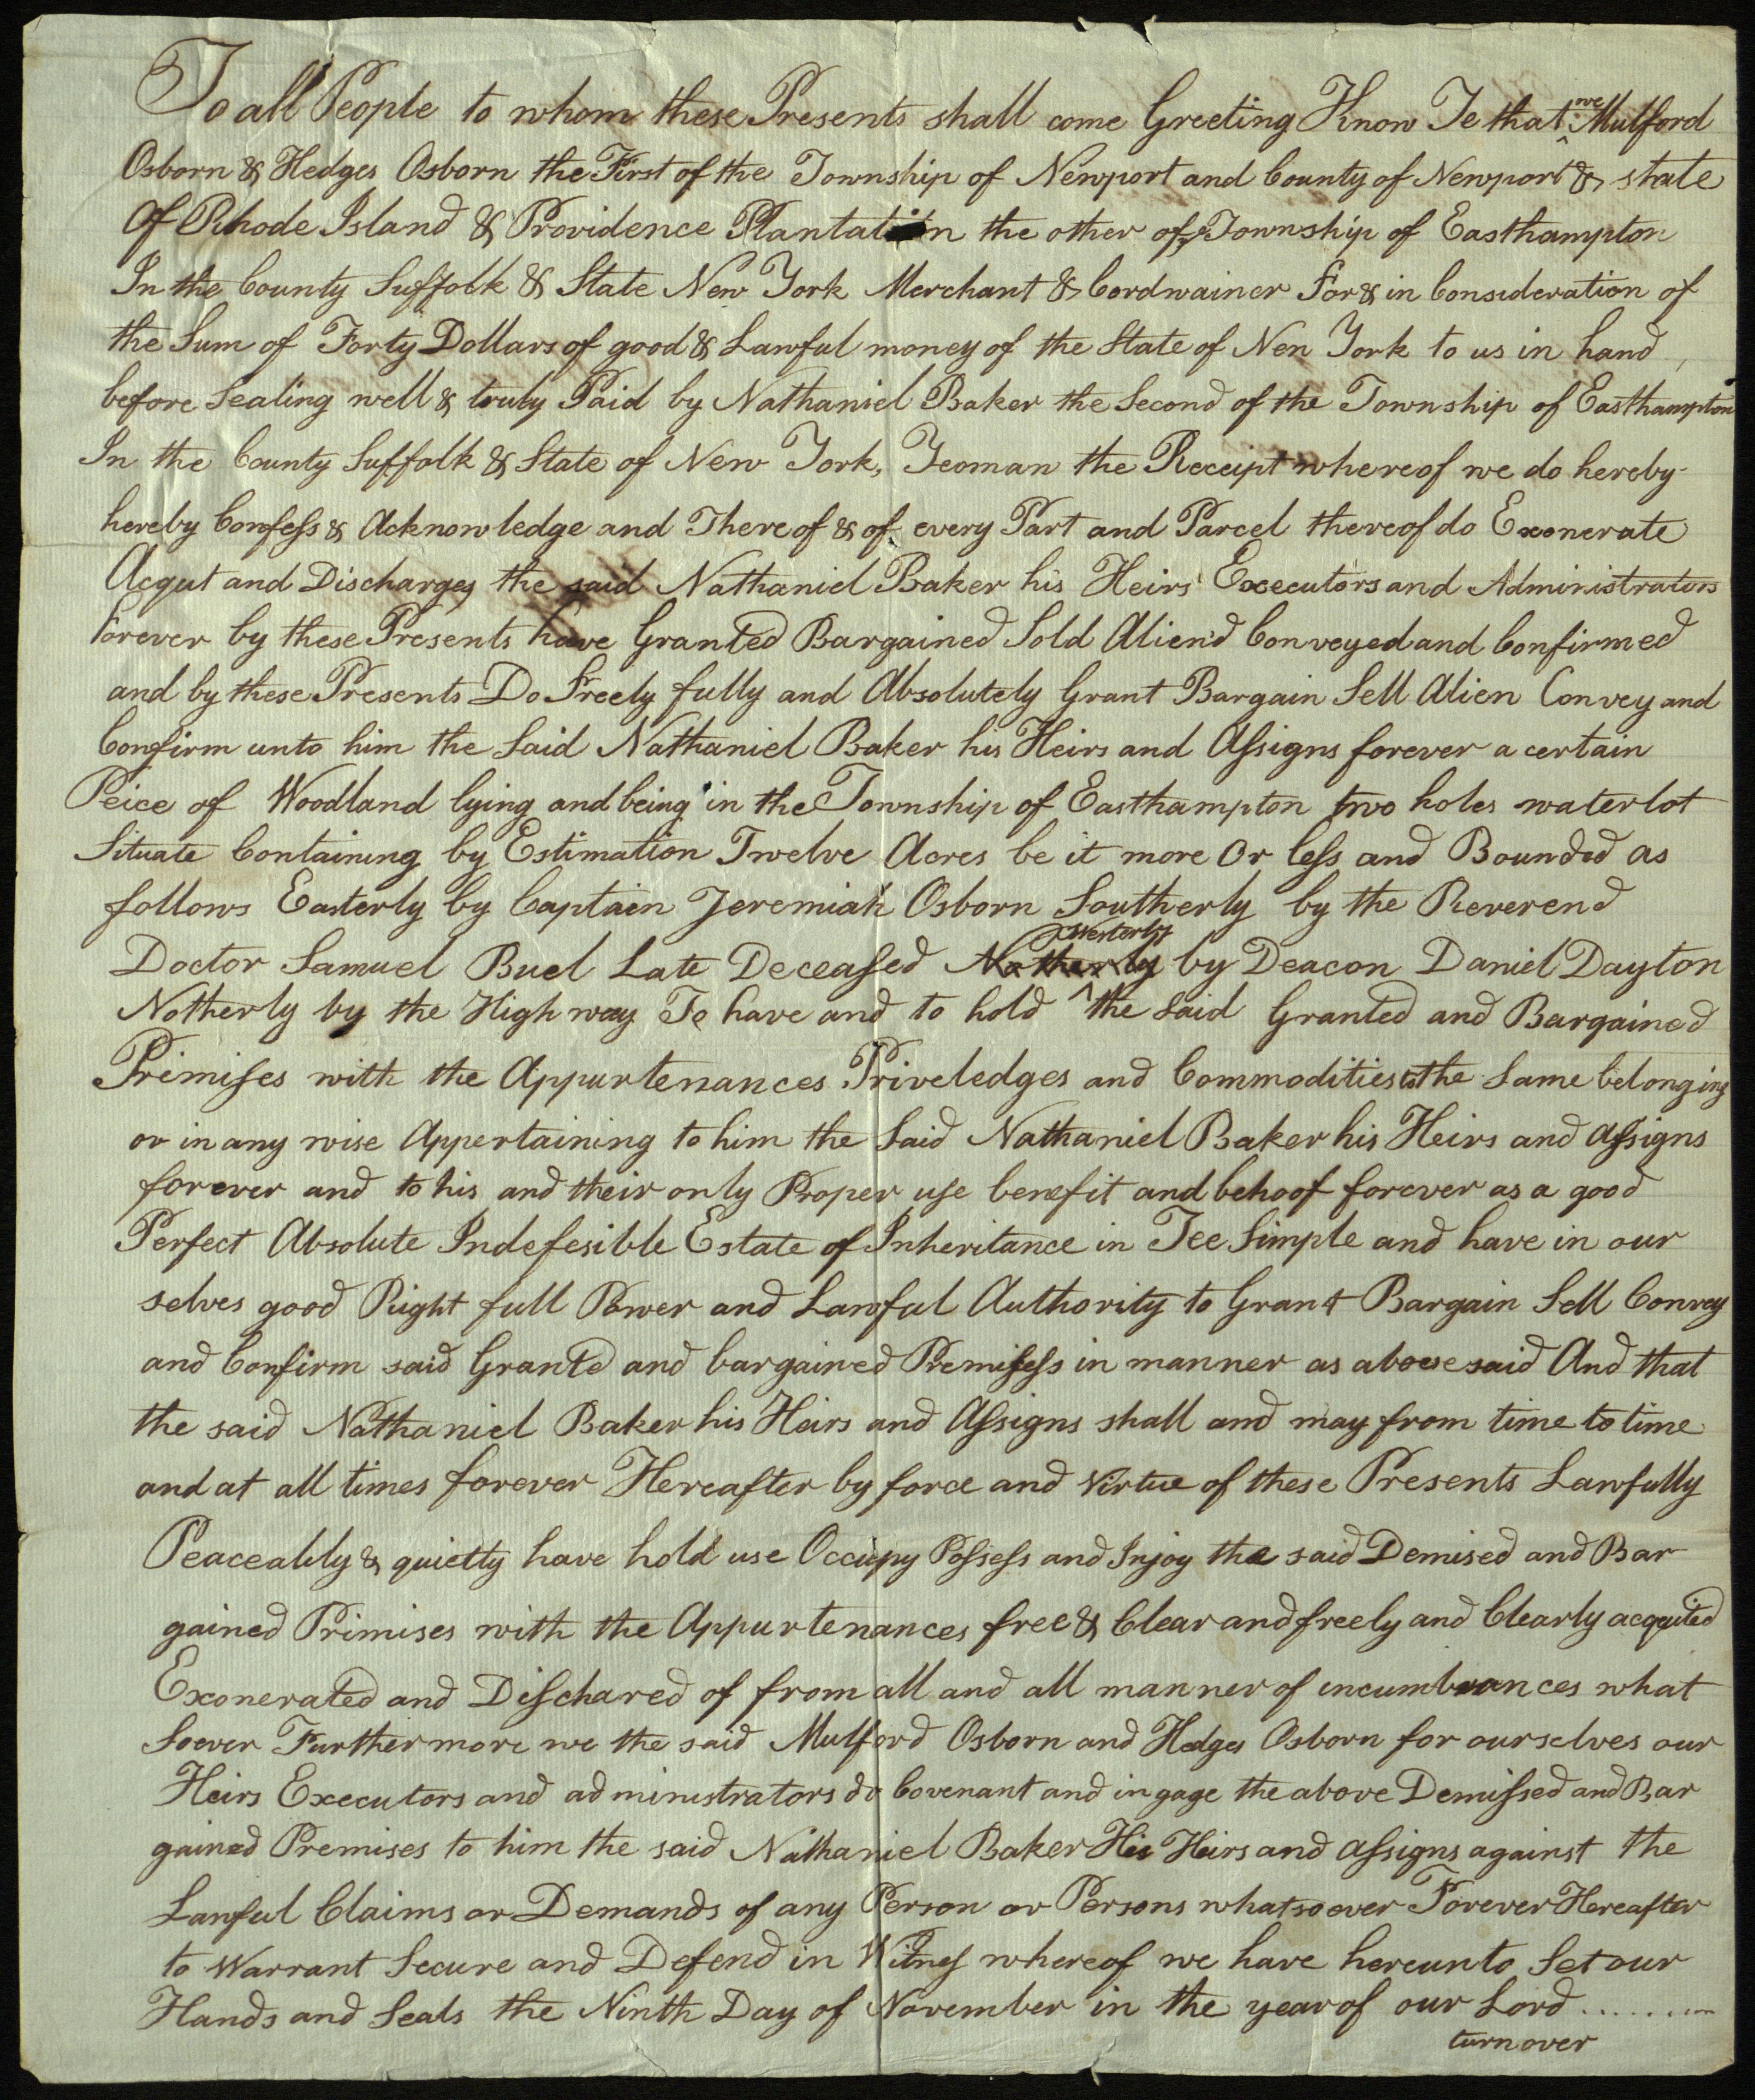 To all People to whom these Presents shall come Greeting Know Ye that we Mulford
Osborn & Hedges Osborn the First of the Township of Newport and County of Newport & state
Of Rhode Island & Providence Plantation the other of ye Township of Easthampton
In the County Suffolk & State New York Merchant & Cordwainer For & in Consideration of
the Sum of Forty Dollars of good & Lawful money of the State of New York to us in hand
before Sealing well & truly Paid by Nathaniel Baker the Second of the Township of Easthampton
In the County Suffolk & State of New York, Yeoman the Receipt whereof we do hereby
hereby Confess & Acknowledge and Thereof & of every Part and Parcel thereof do Exonerate
Acqut and Discharges the said Nathaniel Baker his Heirs Executors and Administrators
Forever by these Presents have Granted Bargained Sold Alien'd Conveyed and Confirmed
and by these Presents Do Freely fully and Absolutely Grant Bargain Sell Alien Convey and
Confirm unto him the Said Nathaniel Baker his Heirs and Assigns forever a certain
Peice of Woodland lying and being in the Township of Easthampton two holes water lot
Situate Containing by Estimation Twelve Acres be it more Or less and Bounded as
follows Easterly by Captain Jeremiah Osborn Southerly by the Reverend
Doctor Samuel Buel Late Deceased Notherly Westerly by Deacon Daniel Dayton
Notherly by the High way To have and to hold the Said Granted and Bargained
Primises with the Appurtenances Priveledges and Commodities to the Same belonging
or in any wise Appertaining to him the Said Nathaniel Baker his Heirs and Assigns
forever and to his and their only Proper use benefit and behoof forever as a good
Perfect Absolute Indefesible Estate of Inheritance in Fee Simple and have in our
selves good Right full Power and Lawful Authority to Grant Bargain Sell Convey
and Confirm said Granted and bargained Premisess in manner as abovesaid And that
the said Nathaniel Baker his Heirs and Assigns shall and may from time to time
and at all times forever Hereafter by force and Virtue of these Presents Lawfully
Peaceably & quietty have hold use Occupy Possess and Injoy the said Demised and Bar
gained Primises with the Appurtenances free & Clear and freely and Clearly acquited
Exonerated and Dischared of from all and all manner of incumbrances what
Soever Furthermore we the said Mulford Osborn and Hedges Osborn for ourselves our
Heirs Executors and administrators do Covenant and ingage the above Demissed and Bar
gained Premises to him the said Nathaniel Baker His Heirs and assigns against the
Lawful Claims or Demands of any Person or Persons whatsoever Forever Hereafter
to Warrant Secure and Defend in Witness whereof we have hereunto Set our
Hands and Seals the Ninth Day of November in the year of our Lord ........
turn over